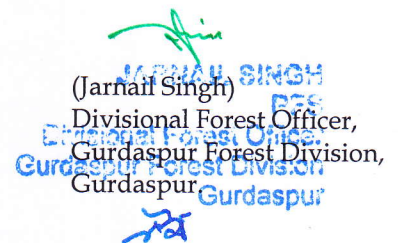 JARNAIL SINGH
PFS
Divisional Forest Officer
Gurdaspur Forest Division
Gurdaspur
(Jarnail Singh)
Divisional Forest Officer,
Gurdaspur Forest Division,
Gurdaspur.